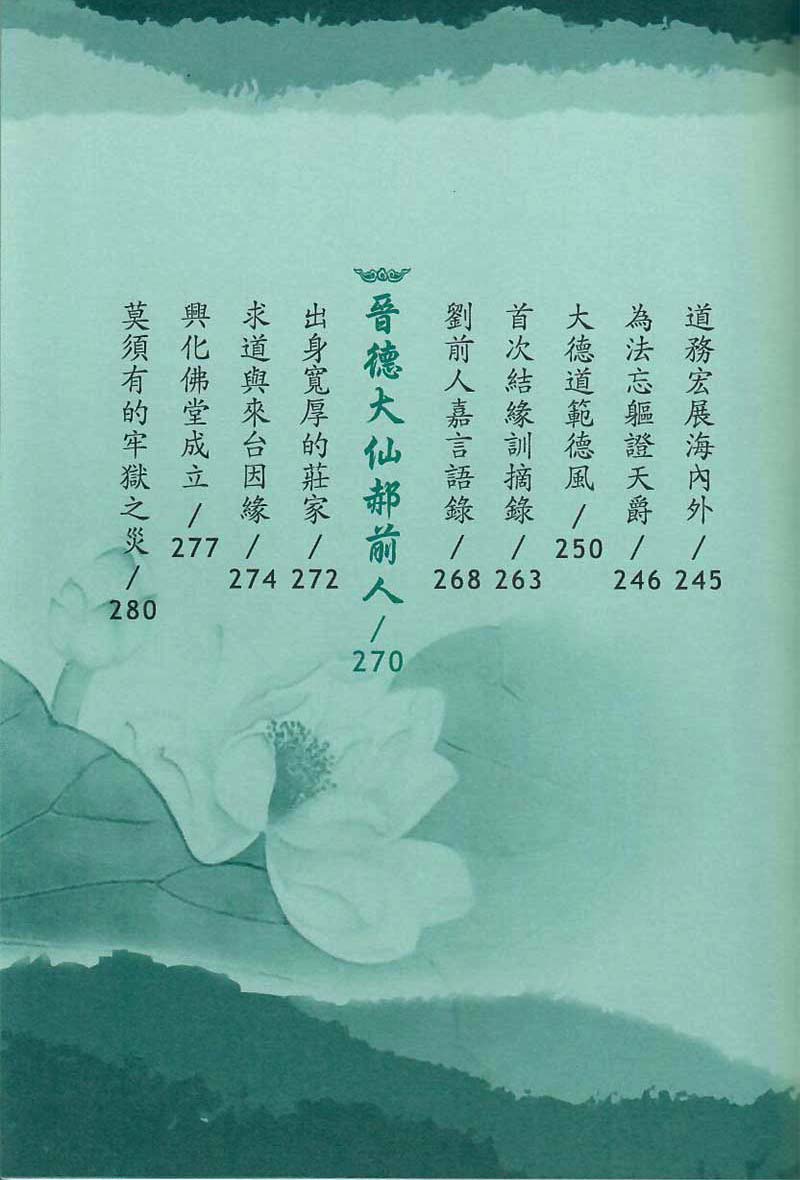 道務宏展海內外/245
為法忘軀證天爵/246
大德道範德風/250
首次結緣訓摘錄/263
劉前人嘉言語錄/268
晉德大仙郝前人/270
出身寬厚的莊家/272
求道與來台因緣/274
興化佛堂成立/277
莫須有的牢獄之災/280